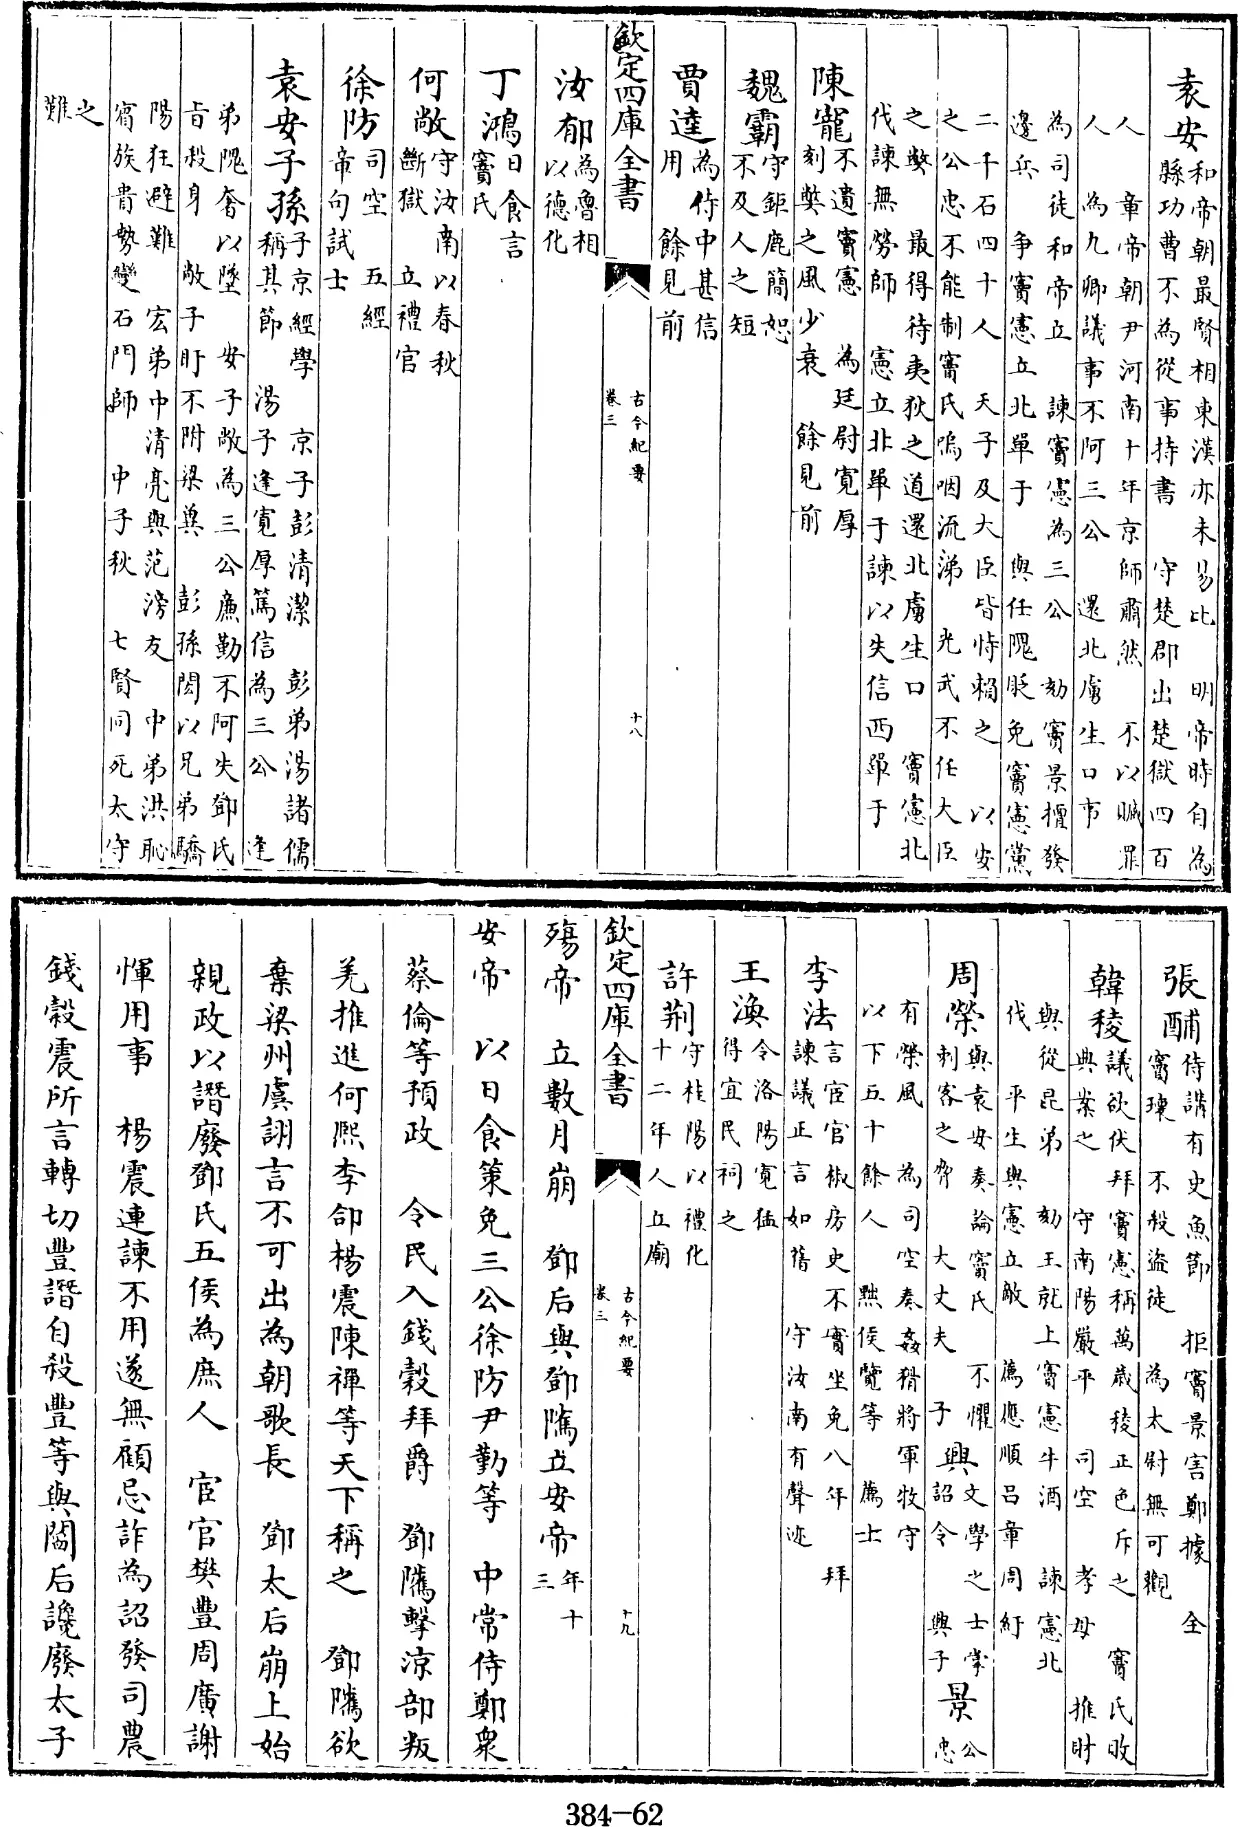 袁安
和帝朝最賢相東漢亦未易比 明帝時自為
縣功曹不為從事持書 守楚郡出楚獄四百
人 章帝朝尹河南十年京師肅然 不以贓罪
人 為九卿議事不阿三公 還北虜生口事
為司徒和帝立 諫竇憲為三公 劾竇景擅發
邊兵 爭竇憲立北單于 與任隗貶免竇憲黨
二千石四十人 天子及大臣皆恃賴之 以安
之公忠不能制竇氏嗚咽流涕 光武不任大臣
之獘 最得待夷狄之道還北虜生口 竇憲北
伐諫無勞師 憲立非單于諫以失信西單于
陳寵
不遺竇憲 為廷尉寬厚
刻獘之風少衰 餘見前
魏霸
守鉅鹿簡恕
不及人之短
賈逵
為侍中甚信
用 餘見前
欽定四庫全書
古今紀要
卷三
十八
汝郁
為魯相
以德化
丁鴻
日食言
竇氏
何敞
守汝南以春秋
斷獄 立禮官
徐防
司空 五經
帝句試士
袁安子孫
子京經學 京子彭清潔 彭弟湯諸儒
稱其節 湯子逢寬厚篤信為三公 逢
弟隗奢以墜 安子敞為三公廉勤不阿失鄧氏
旨殺身 敞子盱不附梁冀 彭孫閎以兄弟驕
陽狂避難 宏弟中清亮與范滂友 中弟洪恥
宦族貴勢變石門師 中子秋 七賢同死太守
之
難
張酺
侍講有史魚節 拒竇景害鄭據 全
竇瓌 不殺盜徒 為太尉無可觀
韓稜
議欲伏拜竇憲稱萬歲稜正色斥之 竇氏敗
典案之 守南陽嚴平 司空 孝母 推財
與從昆弟 劾王就上竇憲牛酒 諫憲北
伐 平生與憲立敵 薦應順呂章周紆
周榮
與袁安奏論竇氏 不懼
刺客之脅 大丈夫 子
興
文學之士掌
詔令 興子
景
公
忠
有榮風 為司空奏姦猾將軍牧守
以下五十餘人 黜侯覽等 薦士
李法
言宦官椒房史不實坐免八年 拜
諫議正言如舊 守汝南有聲迹
王渙
令洛陽寬猛
得宜民祠之
許荊
守桂陽以禮化
十二年人立廟
欽定四庫全書
古今紀要
卷三
十九
殤帝 立數月崩 鄧后與鄧隲立安帝
年十
三
安帝 以日食策免三公徐防尹勤等 中常侍鄭眾
蔡倫等預政 令民入錢穀拜爵 鄧隲擊涼部叛
羌推進何熙李郃楊震陳禪等天下稱之 鄧隲欲
棄梁州虞詡言不可出為朝歌長 鄧太后崩上始
親政以譖廢鄧氏五侯為庶人 宦官樊豐周廣謝
惲用事 楊震連諫不用遂無顧忌詐為詔發司農
錢穀震所言轉切豐譖自殺豐等與閻后讒廢太子
384-62